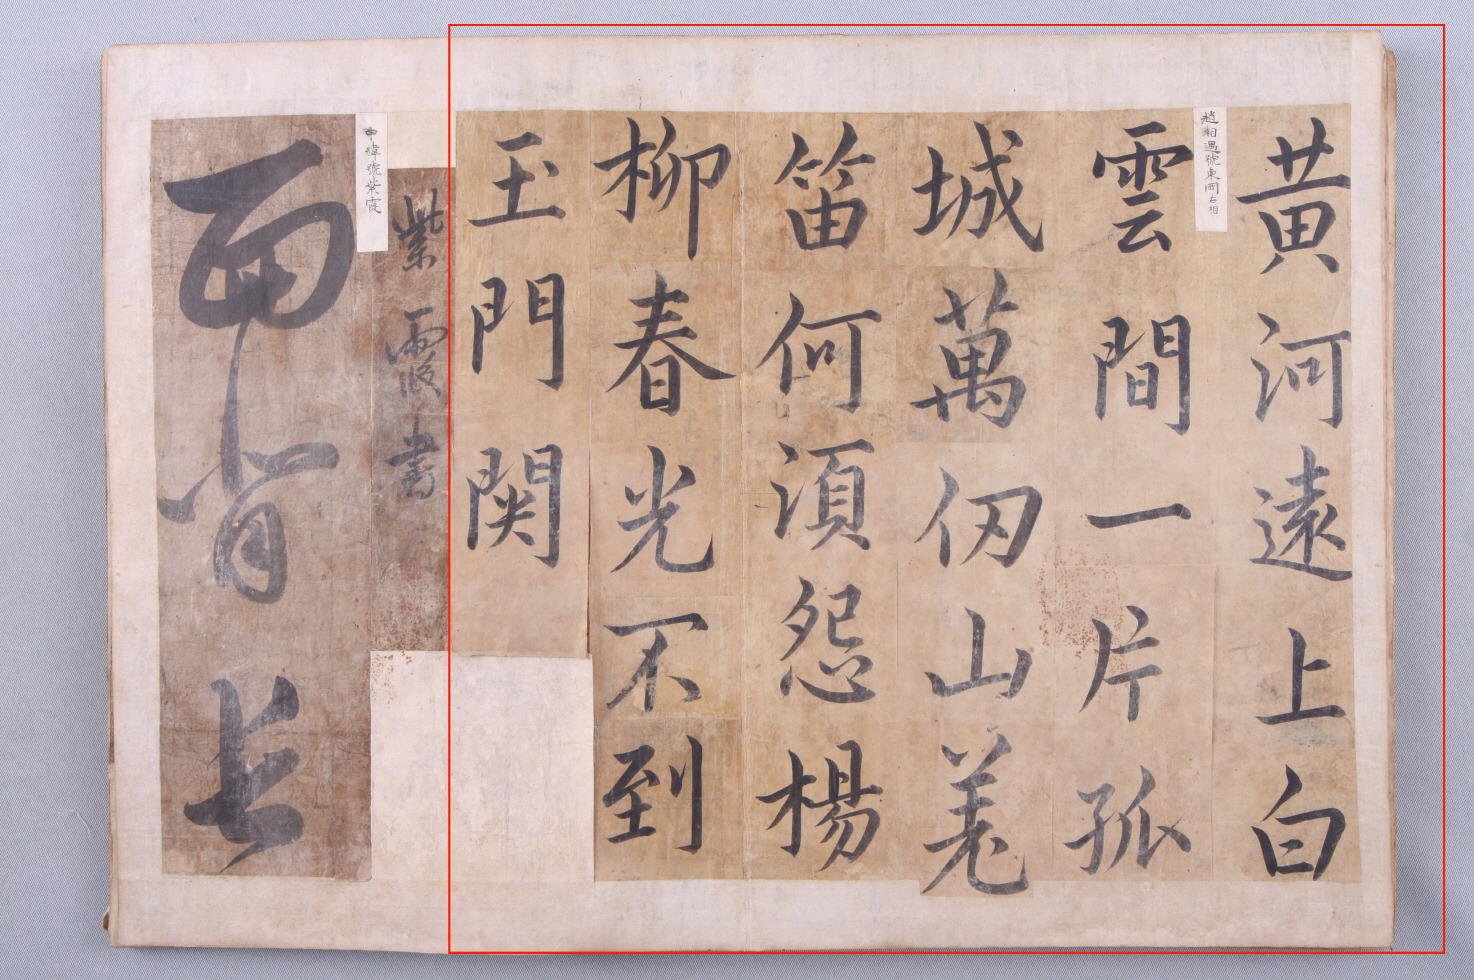 黃河遠上白
趙相遇號東岡右相
雲間一片孤
城萬仞山羌
笛何湏怨楊
柳春光不到
玉門関
紫霞書
申緯號紫霞